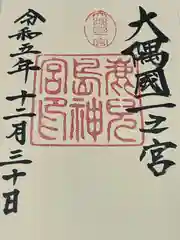 大隅國一之宮
鹿兒
島神
宮印
令和五年十二月三十日